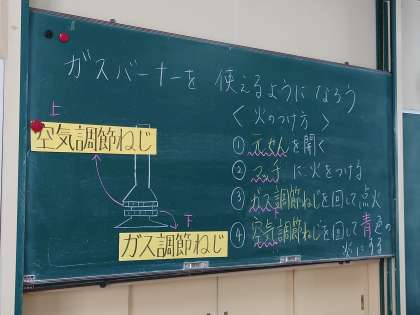 ガスバーナーを使えるようになろう
上
空気調節ねじ
下
ガス調節ねじ
〈火のつけ方〉
① 元せんを開く
② マッチに火をつける
③ ガス調節ねじを回して点火
④ 空気調節ねじを回して青色の
炎にする